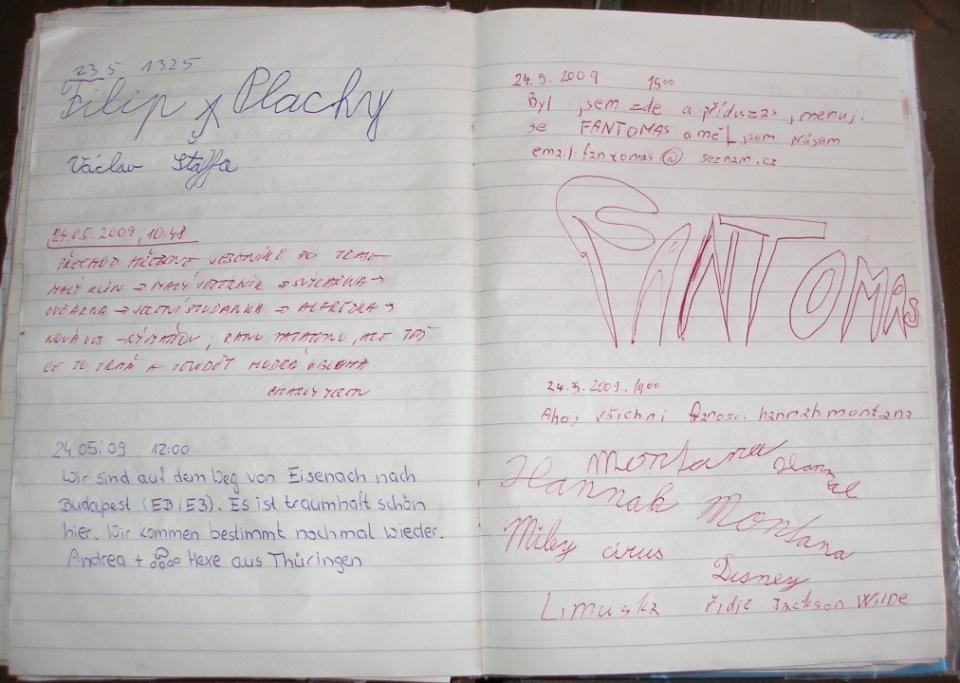 23 5. 1325
Filip Plachy
Václav Staffa
24.05.2009, 10.48
PŘECHOD
MALÝ KLÍN → MALÝ →
OVČÁRNA → → ALFRÉDKA →
NOVÁ VES - RÝMAŘOV; RÁNO ZATAŽENO, ALE TEĎ
SE TO TRHÁ A MODRÁ OBLOHA
24.05.09 12:00
Wir sind auf dem Weg von Eisenach nach
Budapest (EB/E3). Es ist traumhaft schön
hier. Wir kommen bestimmt nochmal wieder.
Andrea + Hexe aus Thüringen
24.5.2009 15⁰⁰
Byl jsem zde a příduzas, menuji
se FANTOMAS a měl jsem průsem
email: fantomas@ seznam.cz
FANTOMAS
24.5.2009. 1900
Ahoj všichni fanosci hannah montana
Montana
Hannah Montana
Miley cirus
Disney
Limuska řidič Jackson Wilde